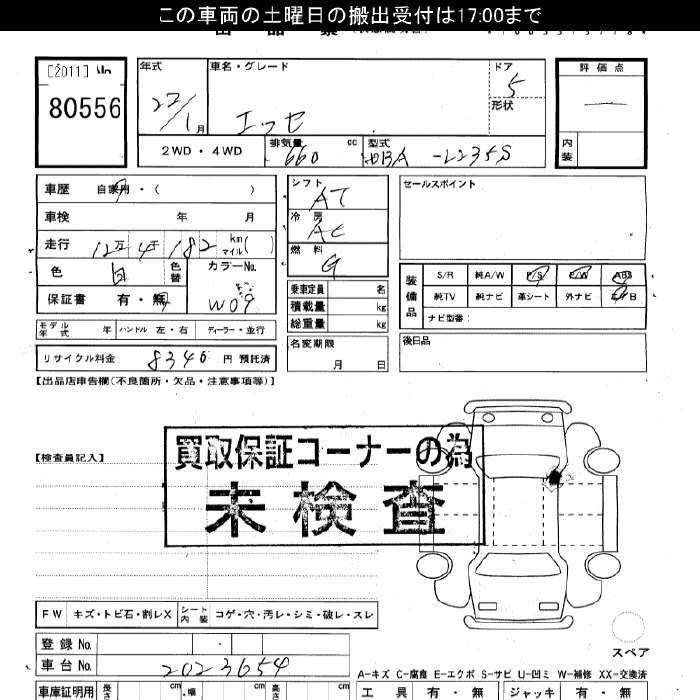 この車両の土曜日の搬出受付は17:00まで
[2011]
80556
年式
22/1月
車名・グレード
エッセ
ドア
5
形状
評価点
—
内装
2WD・4WD
排気量
660
cc
型式
DBA-L235S
車歴 自家用・( )
車検 年 月
走行 12万4千182 km マイル( )
色 白 色替
カラーNo. W09
保証書 有・無
モデル年式 年 ハンドル 左・右 ディーラー・並行
リサイクル料金 8340 円 預託済
シフト AT
冷房 AC
燃料 G
乗車定員 名
積載量 kg
総重量 kg
名変期限
月 日
セールスポイント
装備品
S/R 純A/W P/S P/W ABS
純TV 純ナビ 革シート 外ナビ エアB
ナビ型番:
後日品
【出品店申告欄(不良箇所・欠品・注意事項等)】
【検査員記入】
買取保証コーナーの為
未検査
FW キズ・トビ石・割レX シート内装 コゲ・穴・汚レ・シミ・破レ・スレ
登録No.
車台No. 2023654
スペア
A-キズ C-腐食 E-エクボ S-サビ U-凹ミ W-補修 XX-交換済
車庫証明用 長さ cm 幅 cm 高さ cm
工具 有・無 ジャッキ 有・無